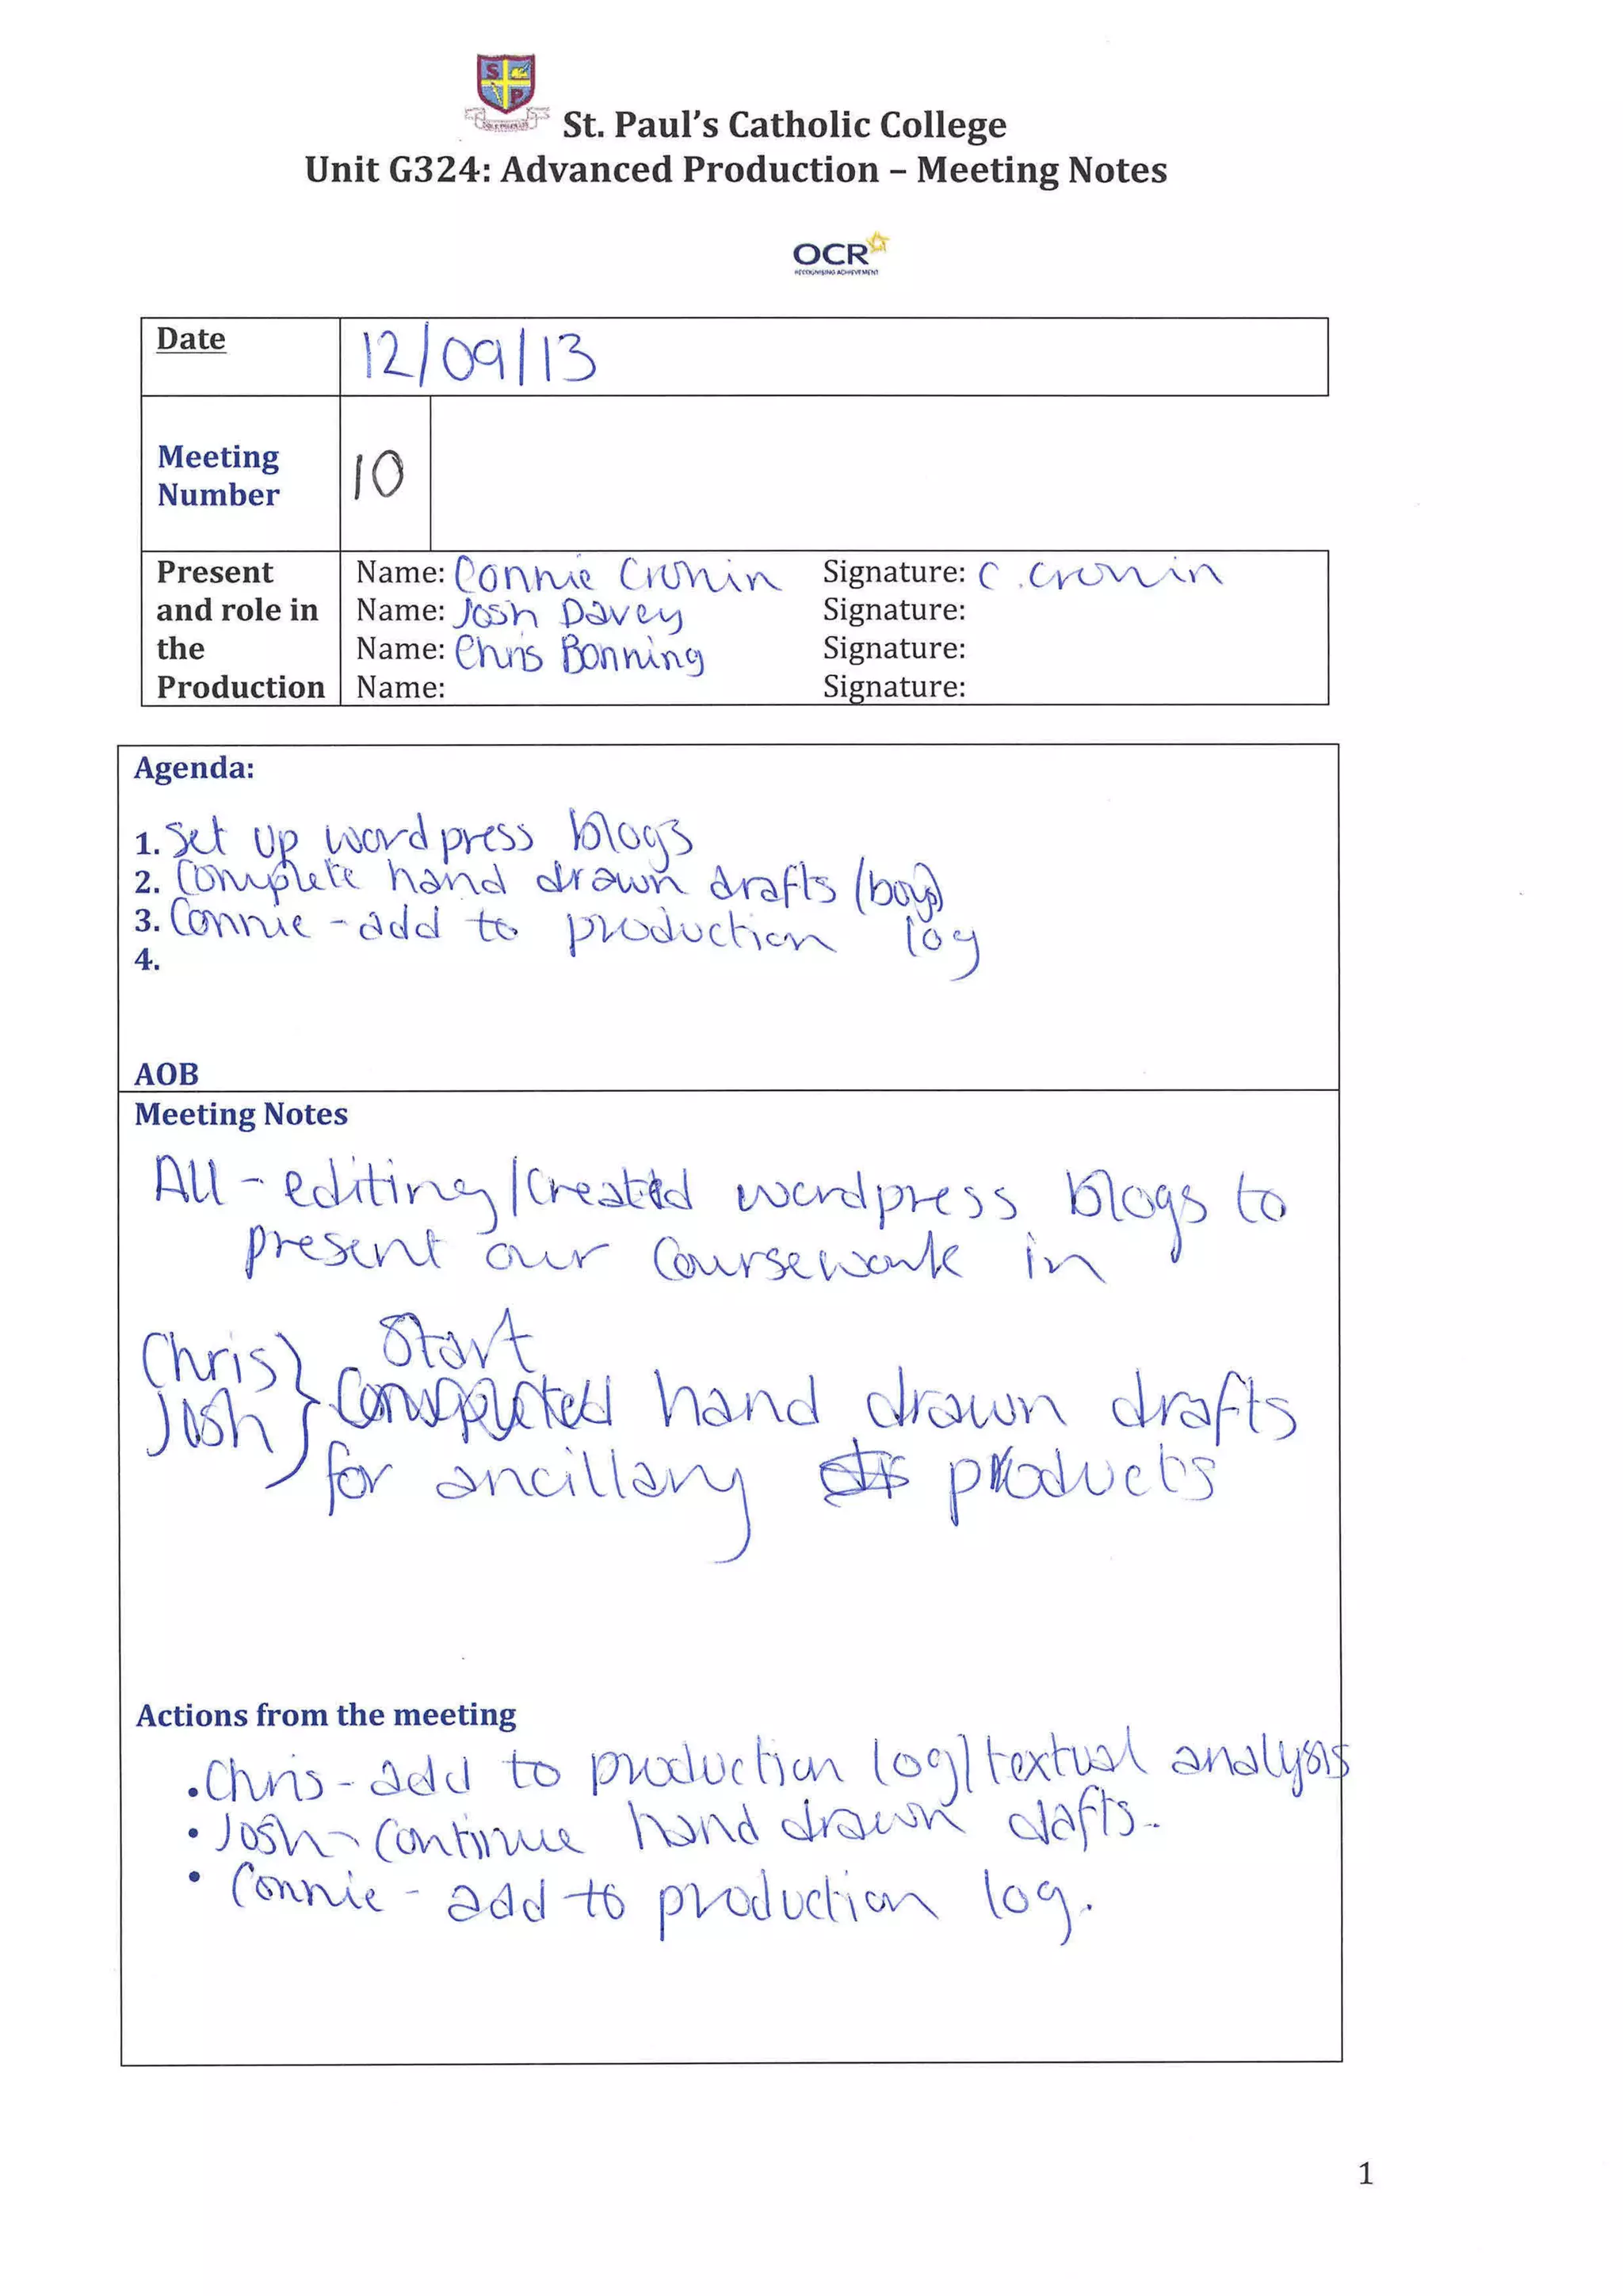 S P
St. Paul's Catholic College
Unit G324: Advanced Production – Meeting Notes
OCR
RECOGNISING ACHIEVEMENT
Date 12/09/13
Meeting
Number 10
Present
and role in
the
Production
Name: Connie Cronin Signature: C. Cronin
Name: Josh Davey Signature:
Name: Chris Bonning Signature:
Name: Signature:
Agenda:
1. Set up wordpress blogs
2. Complete hand drawn drafts (boys)
3. Connie - add to production log
4.
AOB
Meeting Notes
All - editing/created wordpress blogs to
present our coursework in
Chris } Start
Josh } Completed hand drawn drafts
for ancillary products
Actions from the meeting
• Chris - add to production log/textual analysis
• Josh - continue hand drawn dafts.
• Connie - add to production log.
1